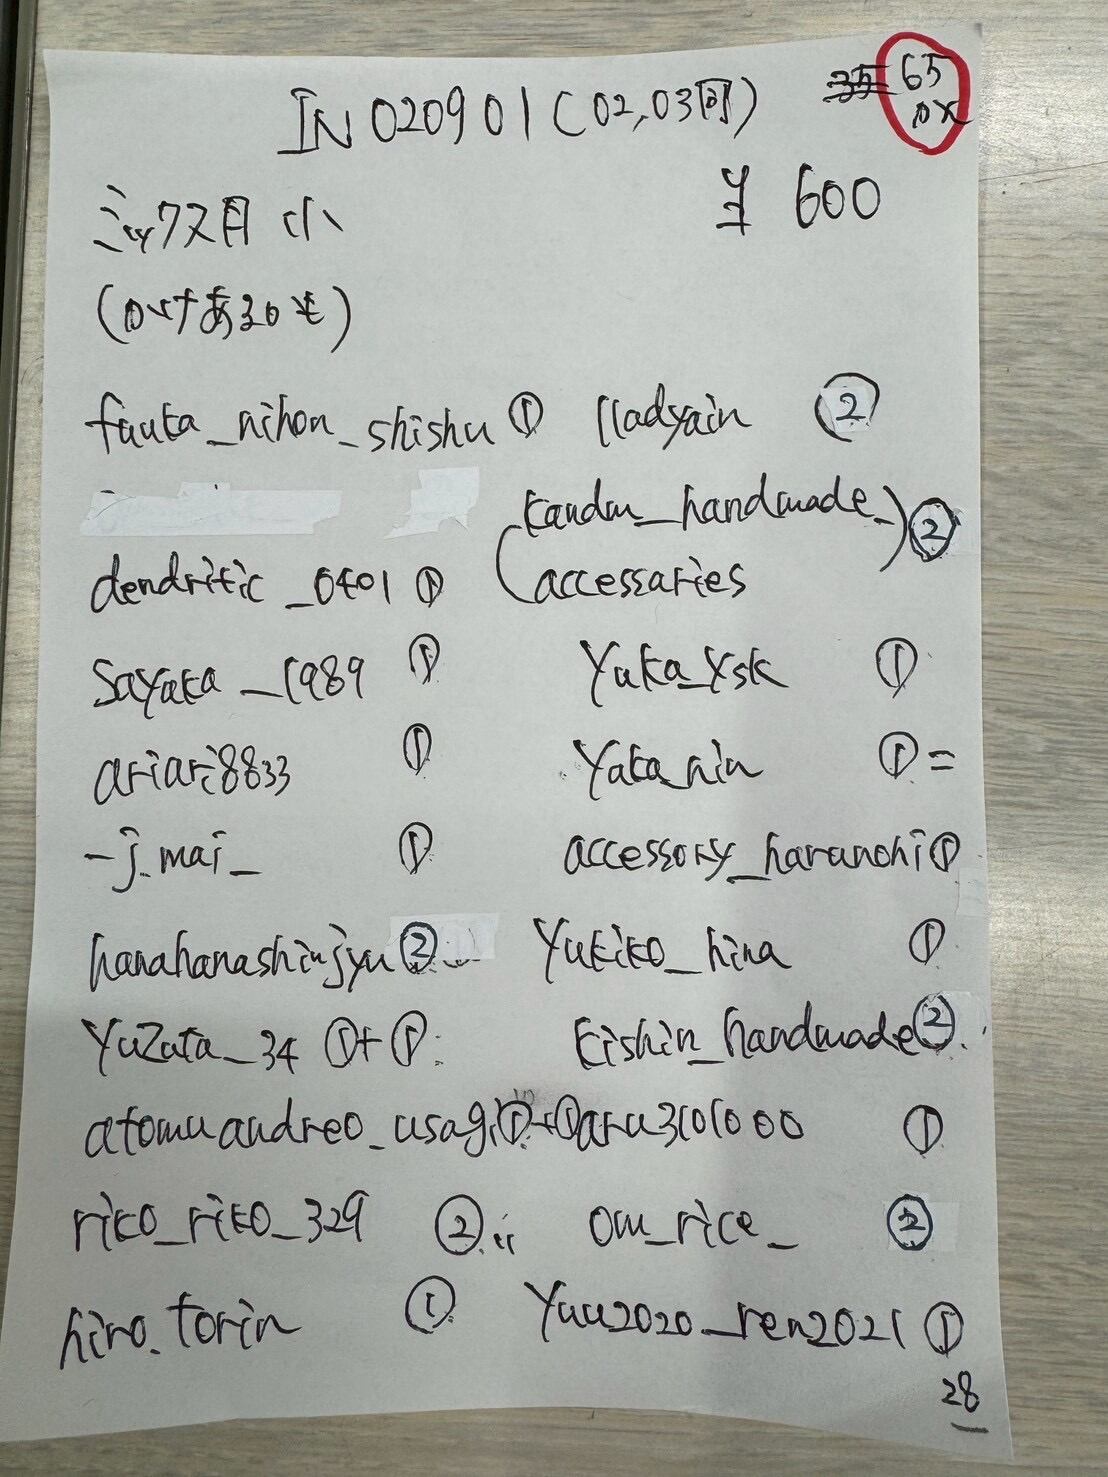 IN020901(02,03同)
35 65
ミックス貝 小
¥ 600
(かけあるかも)
fuuka_nihon_shishu ① lladyain ②
kandm_handmade_
accessaries ②
dendritic_0401 ①
Sayaka_1989 ① Yuka_Ysk ①
ariari8833 ① Yaka_nin ①=
_j.mai_ ① accessory_haranohi ①
hanahanashinjyu ② Yukiko_hina ①
Yuzuta_34 ①+① kishin_handmade ②
atomuandreo_usagi ①+① aru3101000 ①
riko_riko_329 ② om_rice_ ②
hiro.torin ① Yuu2020_ren2021 ①
28